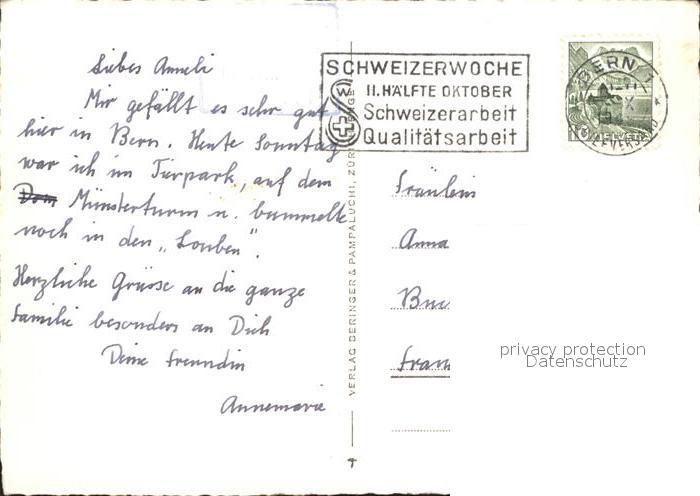 Liebes Anneli
Mir gefällt es sehr gut
hier in Bern. Heute Sonntag
war ich im Tierpark, auf dem
Dom Münsterturm u. bummelte
noch in den „Louben".
Herzliche Grüsse an die ganze
Familie besonders an Dich
Deine Freundin
Annemarie
VERLAG BERINGER & PAMPALUCHI, ZÜR
SCHWEIZERWOCHE
II. HÄLFTE OKTOBER
Schweizerarbeit
Qualitätsarbeit
BERN 1
HELVETIA
Fräulein
Anna
privacy protection
Datenschutz